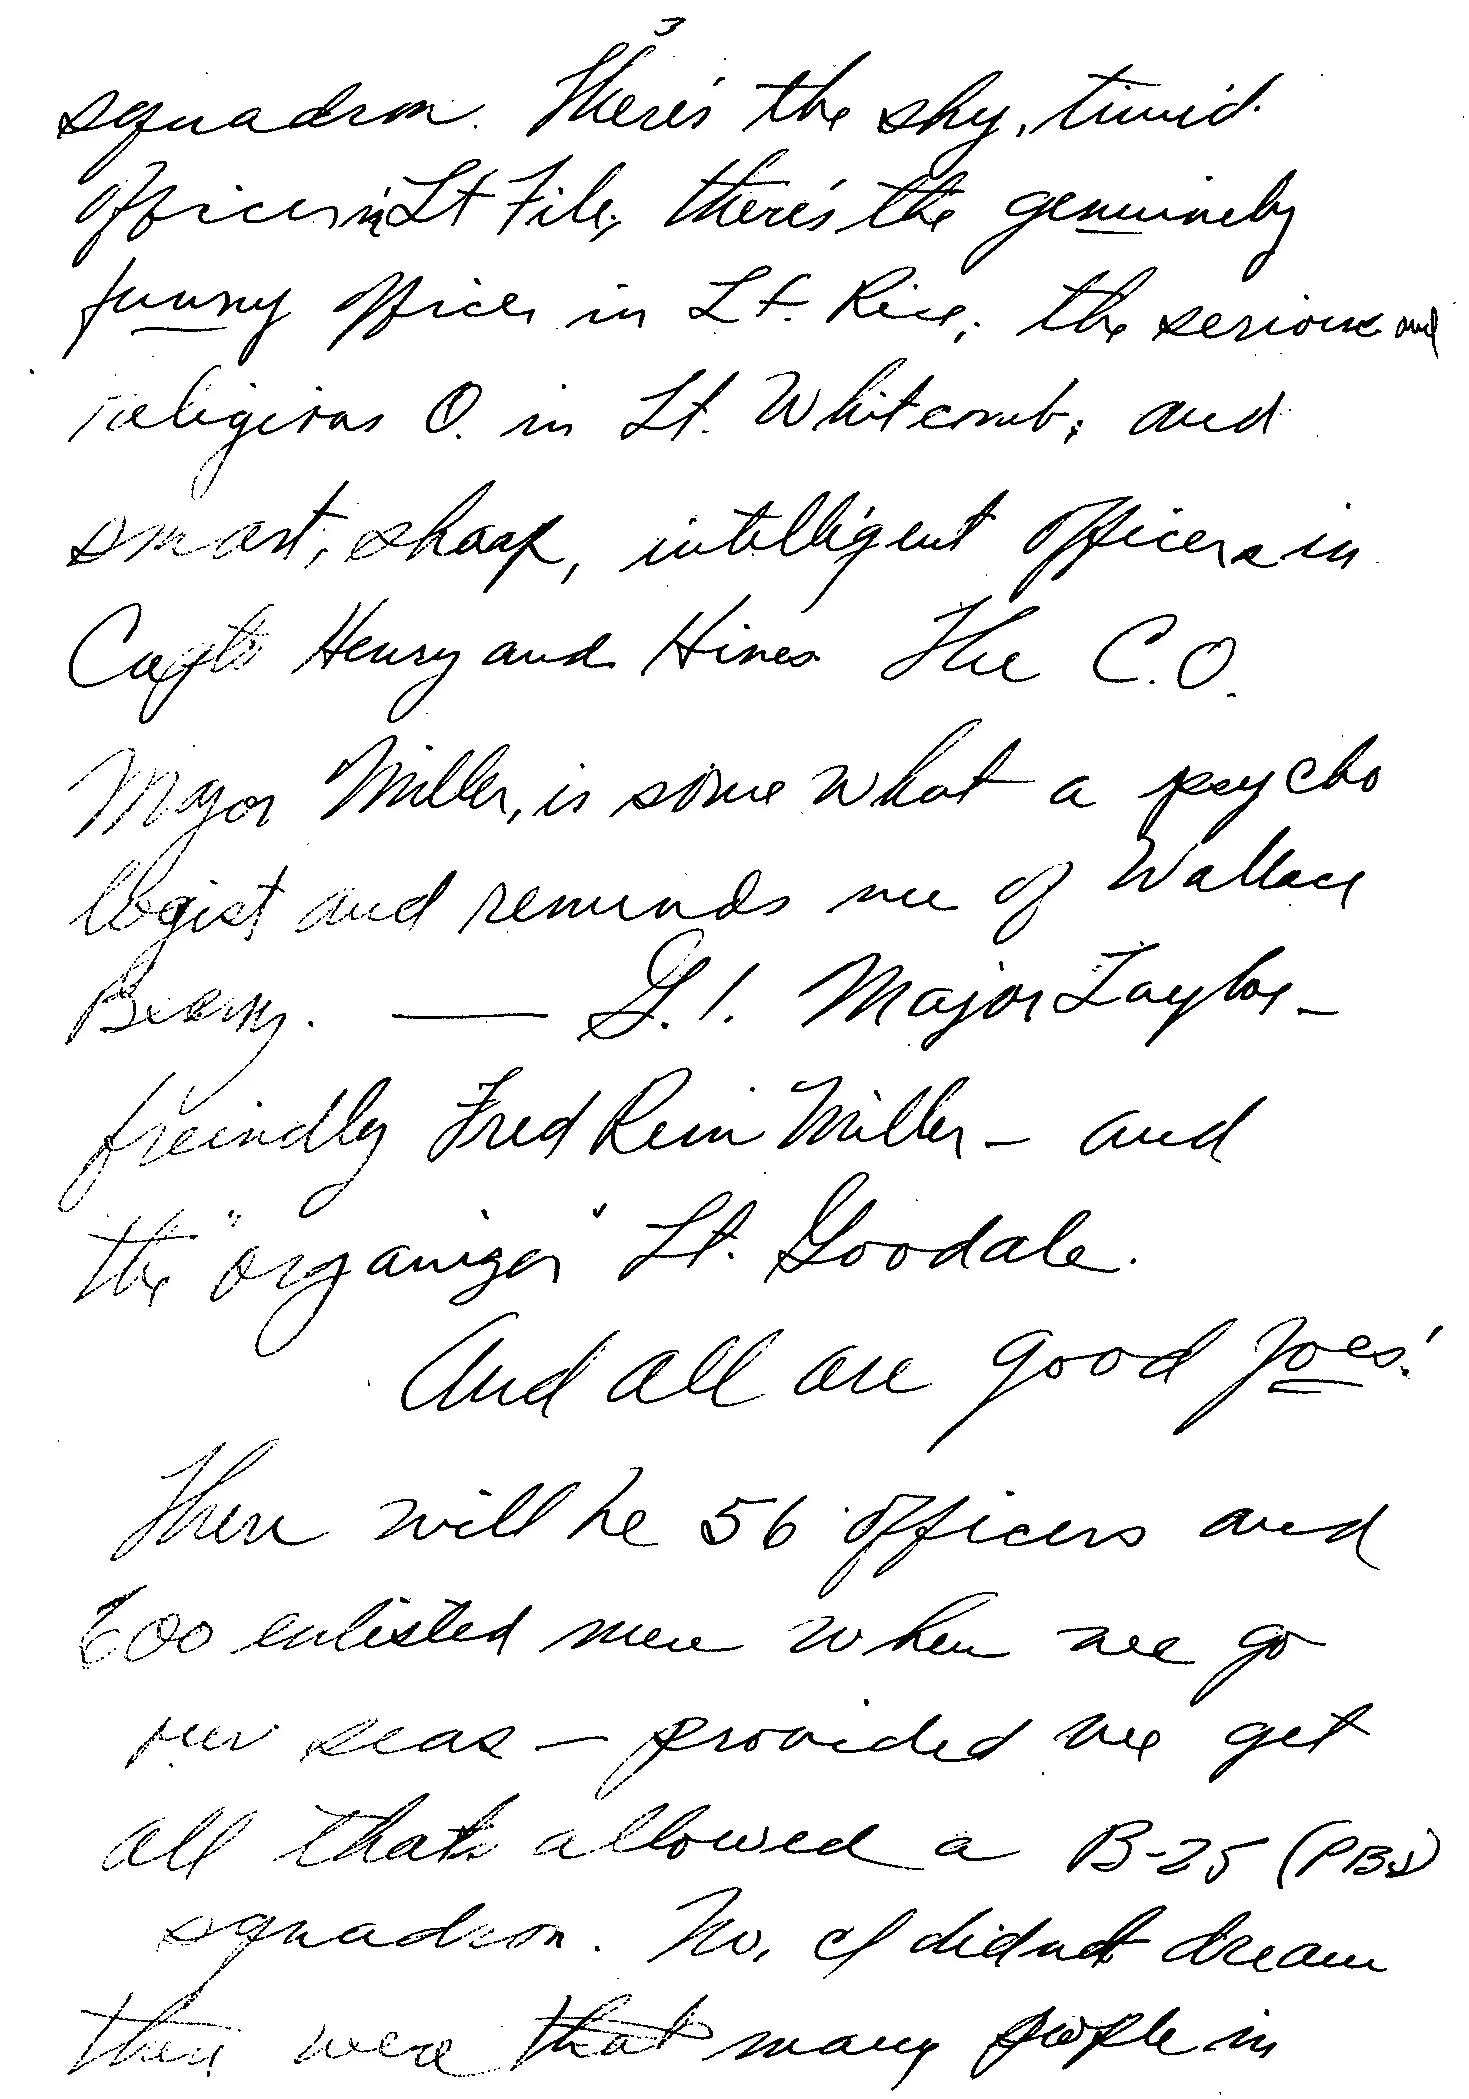 3
squadron. There's the shy, timid
officer in Lt File, there's the genuinely
funny officer in Lt. Rice, the serious and
religious O. in Lt. Whitcomb; and
smart, sharp, intelligent officers in
Capts Henry and Hines The C.O.
Major Miller, is somewhat a psycho
logist and reminds me of Wallace
Beery. — G.I. Major Taylor –
freindly Fred Rein Miller – and
the "organizer" Lt. Goodale.
And all are good Joes!
There will be 56 officers and
600 enlisted men when we go
over seas – provided we get
all thats allowed a B-25 (PBJ)
squadron. No, I didnt dream
there were that many people in